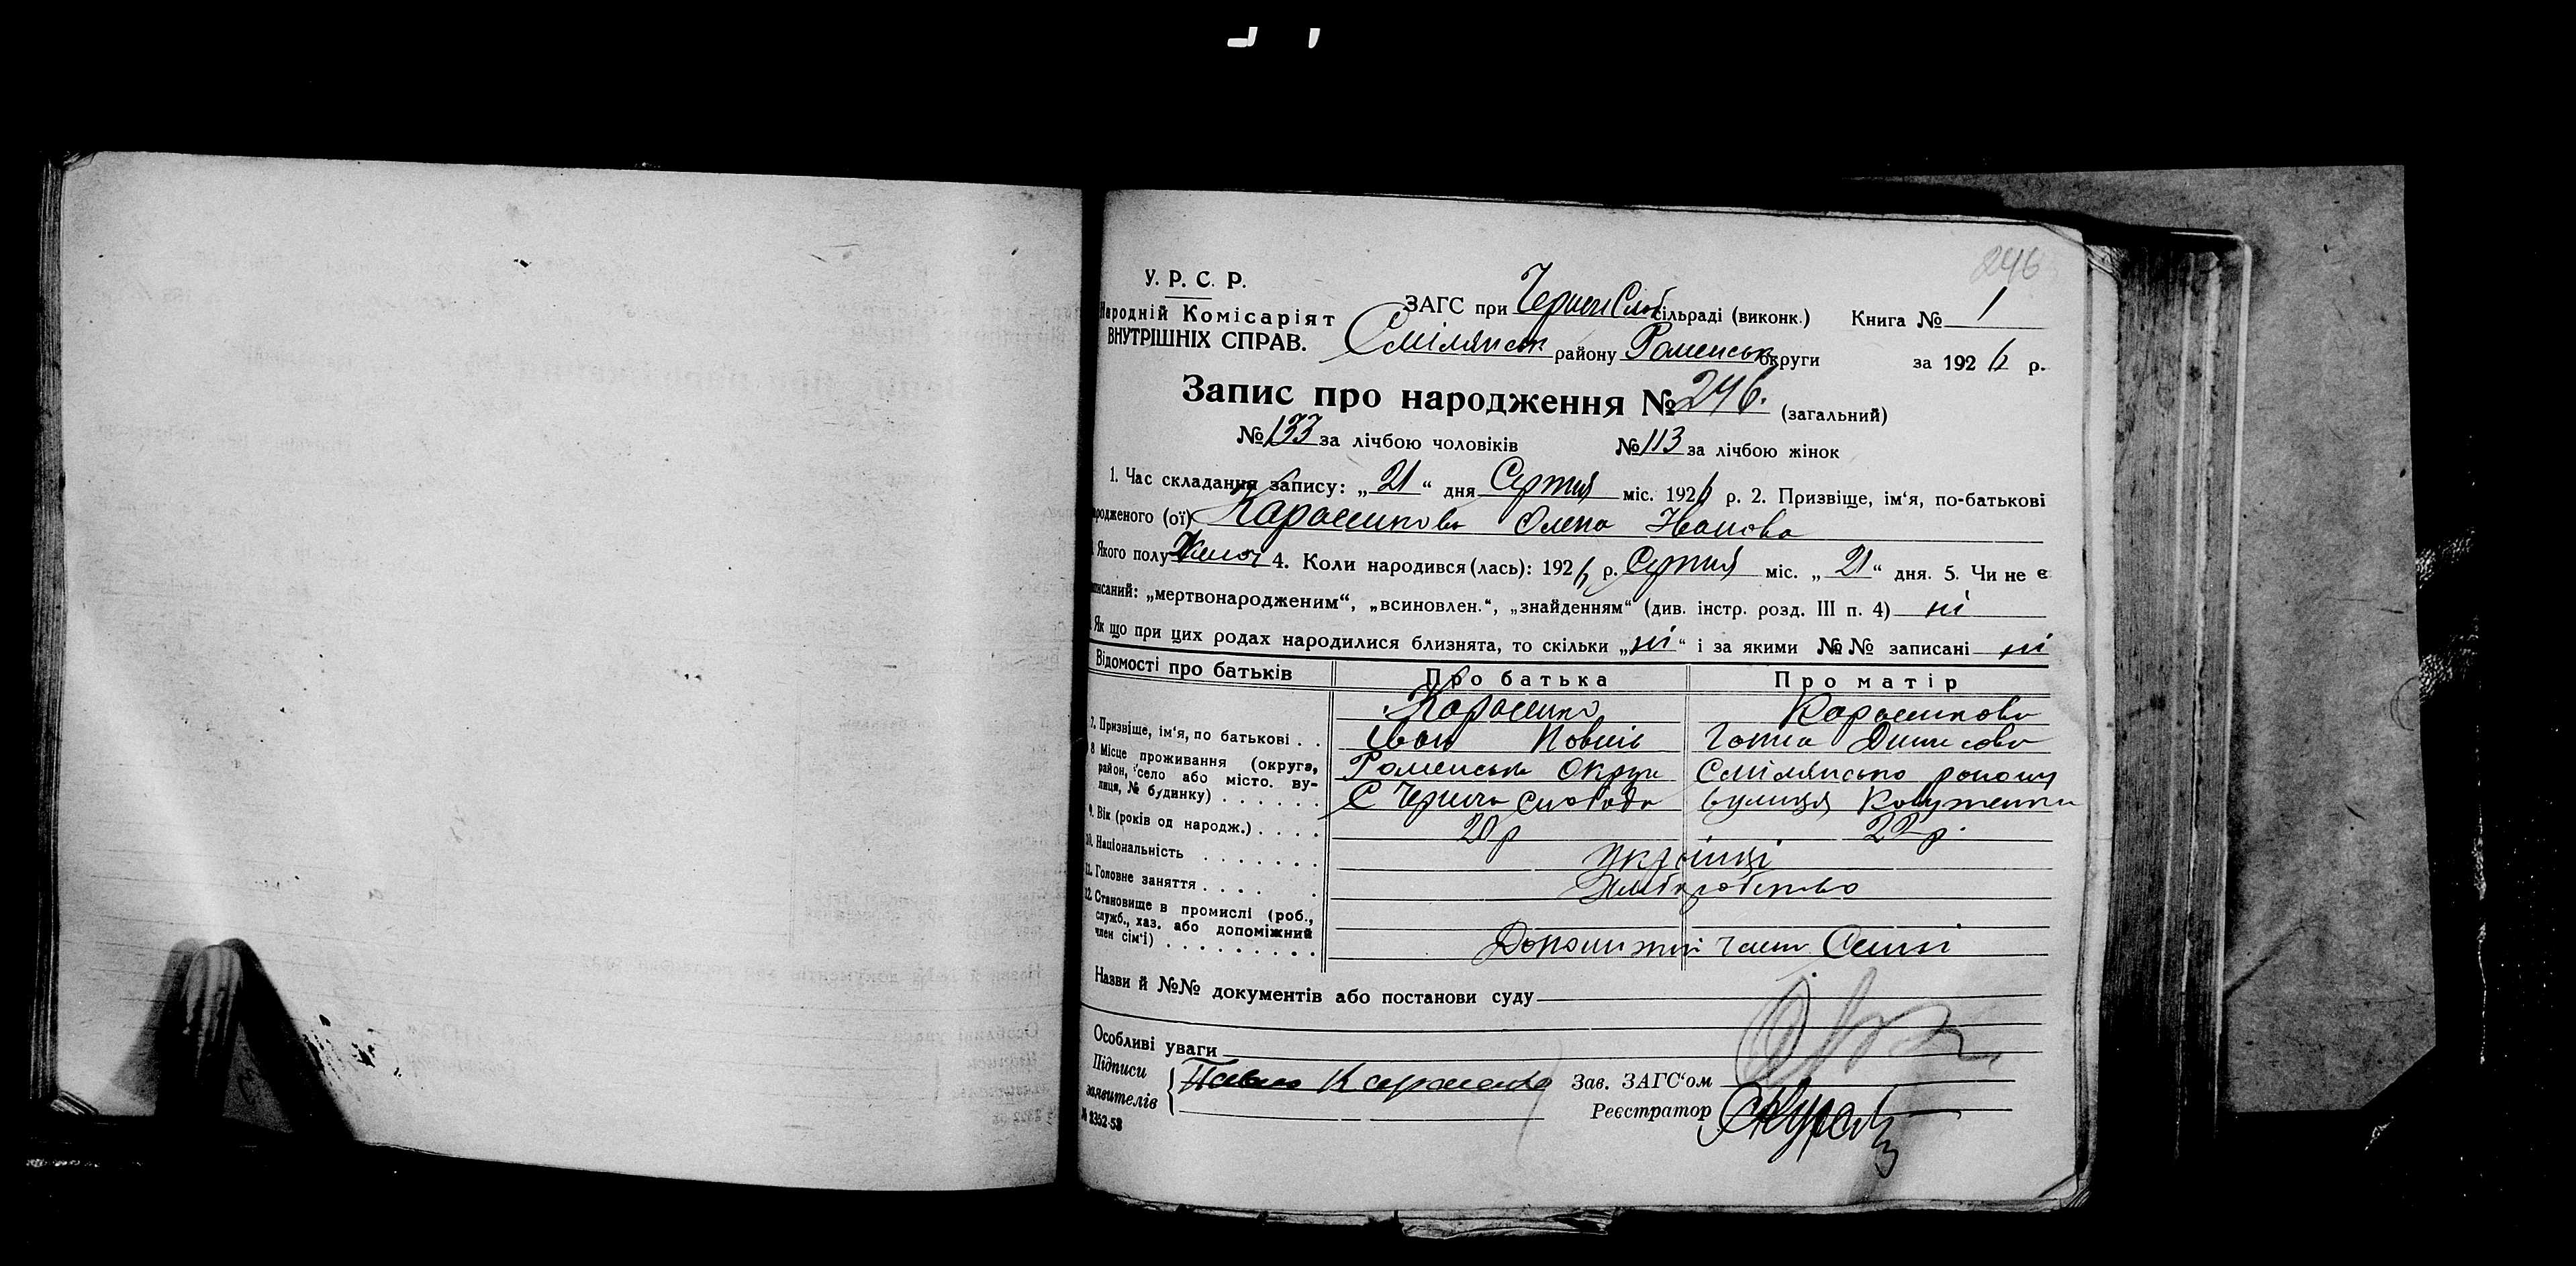 246
У. Р. С. Р.
Народній Комісаріят
ВНУТРІШНІХ СПРАВ.
ЗАГС при Черчечи Слоб сільраді (виконк.) Книга № 1
Смілянськ району Роменськ округи за 1926 р.
Запис про народження № 246. (загальний)
№ 133 за лічбою чоловіків № 113 за лічбою жінок
1. Час складання запису: „21“ дня Серпня міс. 1926 р. 2. Призвіще, ім‘я, по-батькові
народженого (ої) Олена Іванова
Якого полу 4. Коли народився (лась): 1926 р. Серпня міс. „21“ дня. 5. Чи не є
записаний: „мертвонародженим“, „всиновлен.“, „знайденням“ (див. інстр. розд. III п. 4) ні
Як що при цих родах народилися близнята, то скільки „ні“ і за якими №№ записані ні
Відомості про батьків Про батька Про матір
7. Призвіще, ім‘я, по батькові . . Іван Павлів Ганна Денисова
8 Місце проживання (округа, район, село або місто. вулиця, № будинку) . . . . . . Роменська Округ Смілянсько району
С Черича Слобода вулиця
9. Вік (років од народж.) . . . . 20 р 22 р.
10. Національність . . . . . . . Українці
11. Головне заняття . . . . . Хліборобство
12. Становище в промислі (роб., служб., хаз. або допоміжний член сім‘ї) . . . . . . . . . Допоміжні члени Семьї
Назви й №№ документів або постанови суду
Особливі уваги
Підписи заявителів { Павло Зав. ЗАГС‘ом
Реєстратор
№ 2352-53